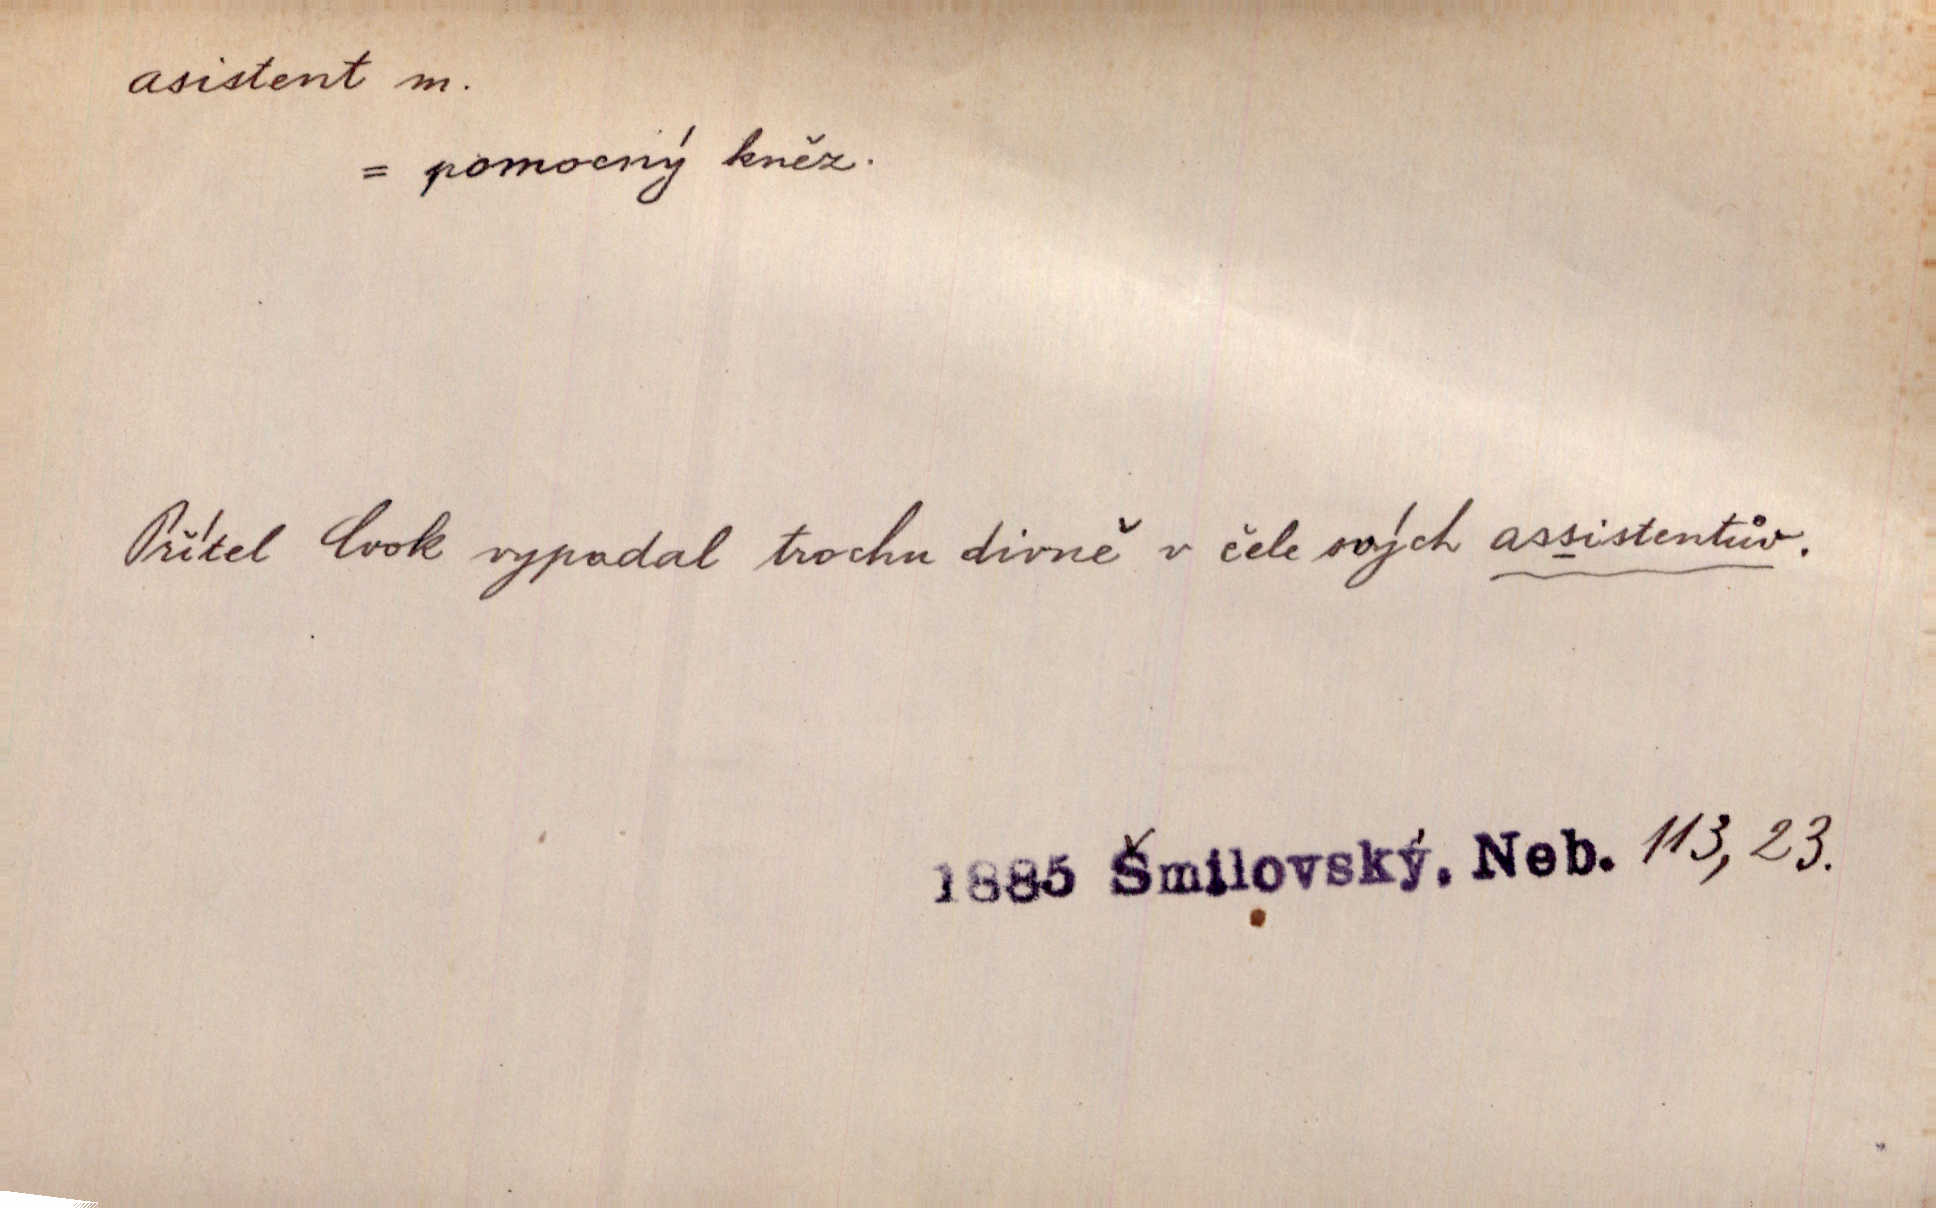 asistent m.
= pomocný kněz.
Přítel Cvok vypadal trochu divně v čele svých assistentův.
1885 Šmilovský, Neb. 113, 23.